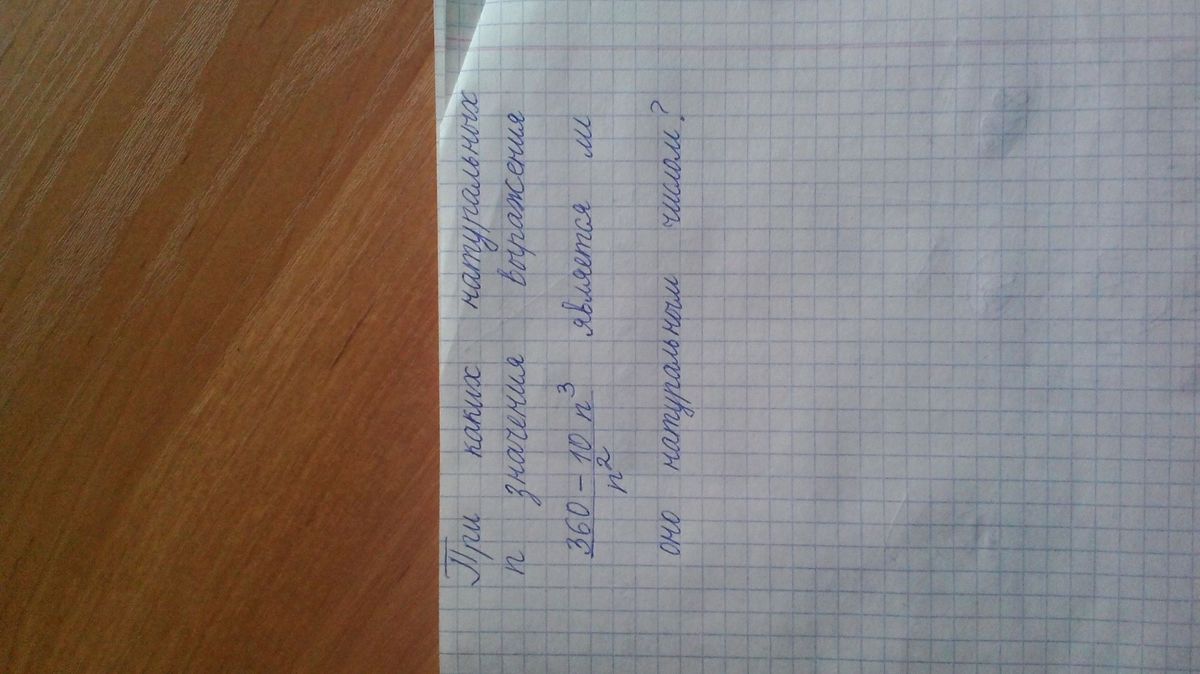 При каких натуральных
n значения выражения
360 - 10 n³ является ли
n²
оно натуральным числом?